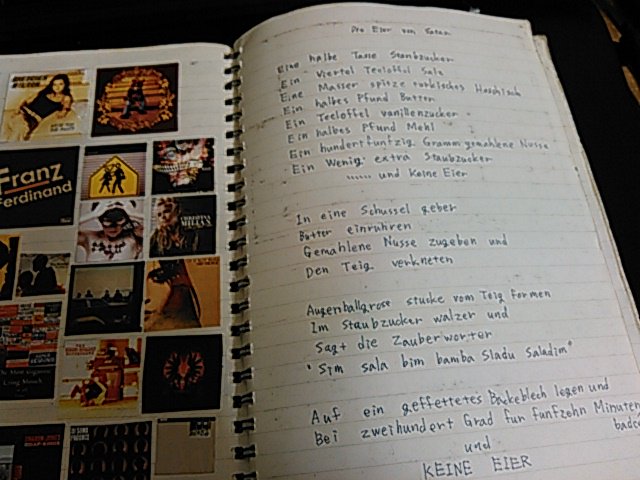 Franz
Ferdinand
CHRISTINA
MILIAN
Die Eier von Satan
Eine halbe Tasse Staubzucker
Ein Viertel Teeloffel Salz
Eine Masser spitze turkisches Haschisch
Ein halbes Pfund Butter
Ein Teeloffel vanillenzucker
Ein halbes Pfund Mehl
Ein hundertfunfzig Gramm gemahlene Nusse
Ein Wenig extra Staubzucker
...... und Keine Eier
In eine Schussel geber
Butter einruhren
Gemahlene Nusse zugeben und
Den Teig verkneten
Augenballgrose stucke vom Teig formen
Im Staubzucker walzer und
Sagt die Zauberworter
"Sim sala bim bamba Sladu Saladim"
Auf ein geffettetes Backeblech legen und
Bei zweihundert Grad fur funfzehn Minuten
und
KEINE EIER